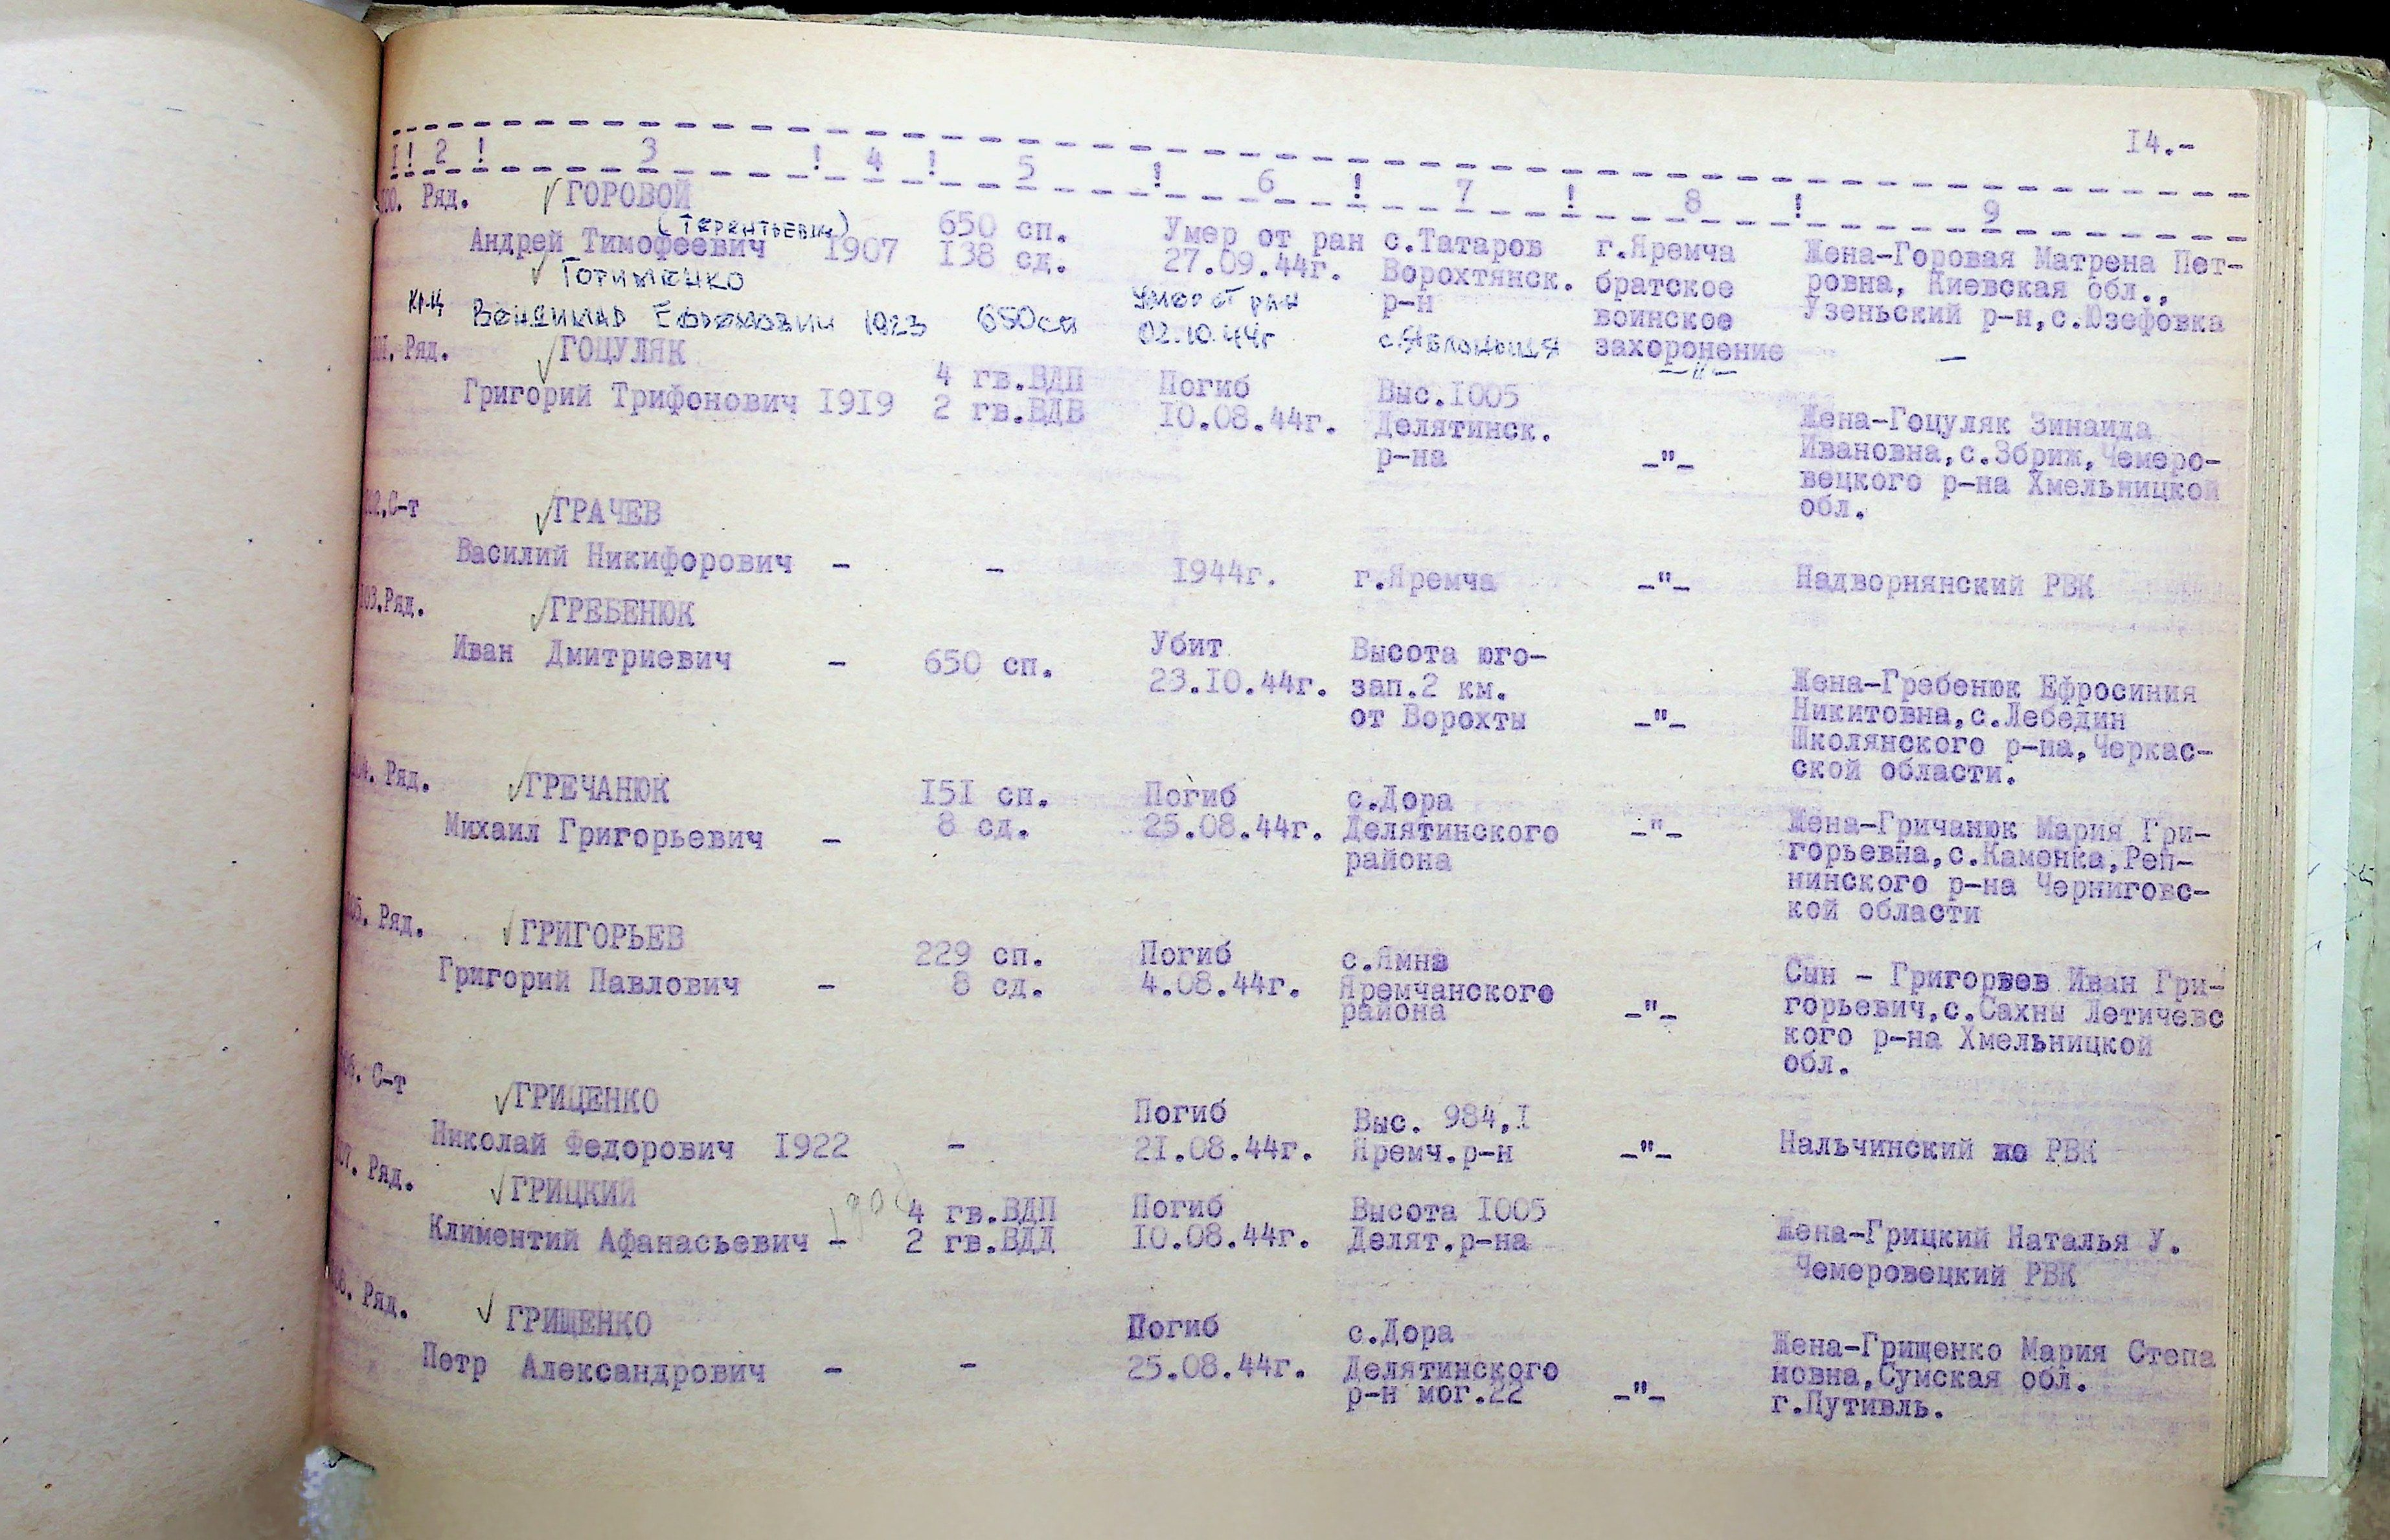 14.-
1! 2 ! 3 ! 4 ! 5 ! 6 ! 7 ! 8 ! 9
100. Ряд. ГОРОВОЙ
(Терентьевич)
Андрей Тимофеевич 1907 650 сп. Умер от ран с.Татаров г.Яремча Жена-Горовая Матрена Пет-
138 сд. 27.09.44г. Ворохтянск. братское ровна, Киевская обл.,
р-н воинское Узеньский р-н,с.Юзефовка
захоронение
Готименко
Кр-ц Вениамин Ефремович 1923 650сп умер от ран
02.10.44г с.Яблоница -"- -
101. Ряд. ГОЦУЛЯК
Григорий Трифонович 1919 4 гв.ВДП Погиб Выс.1005
2 гв.ВДВ 10.08.44г. Делятинск. Жена-Гоцуляк Зинаида
р-на -"- Ивановна,с.Збриж,Чемеро-
вецкого р-на Хмельницкой
обл.
102.С-т ГРАЧЕВ
Василий Никифорович - - 1944г. г.Яремча -"- Надворнянский РВК
103.Ряд. ГРЕБЕНЮК
Иван Дмитриевич - 650 сп. Убит Высота юго-
23.10.44г. зап.2 км. Жена-Гребенюк Ефросиния
от Ворохты -"- Никитовна,с.Лебедин
Школянского р-на,Черкас-
ской области.
104. Ряд. ГРЕЧАНЮК 151 сп. Погиб с.Дора
Михаил Григорьевич - 8 сд. 25.08.44г. Делятинского -"- Жена-Гричанюк Мария Гри-
района горьевна,с.Каменка,Реп-
нинского р-на Черниговс-
кой области
105. Ряд. ГРИГОРЬЕВ 229 сп. Погиб с.Ямна
Григорий Павлович - 8 сд. 4.08.44г. Яремчанского Сын - Григорвев Иван Гри-
района -"- горьевич,с.Сахны Летичевс
кого р-на Хмельницкой
обл.
106. С-т ГРИЦЕНКО Погиб Выс. 984,1
Николай Федорович 1922 - 21.08.44г. Яремч.р-н -"- Нальчинский РВК
107. Ряд. ГРИЦКИЙ 4 гв.ВДП Погиб Высота 1005
Климентий Афанасьевич - 2 гв.ВДД 10.08.44г. Делят.р-на Жена-Грицкий Наталья У.
Чемеровецкий РВК
108. Ряд. ГРИЩЕНКО Погиб с.Дора
Петр Александрович - - 25.08.44г. Делятинского Жена-Грищенко Мария Степа
р-н мог.22 -"- новна,Сумская обл.
г.Путивль.